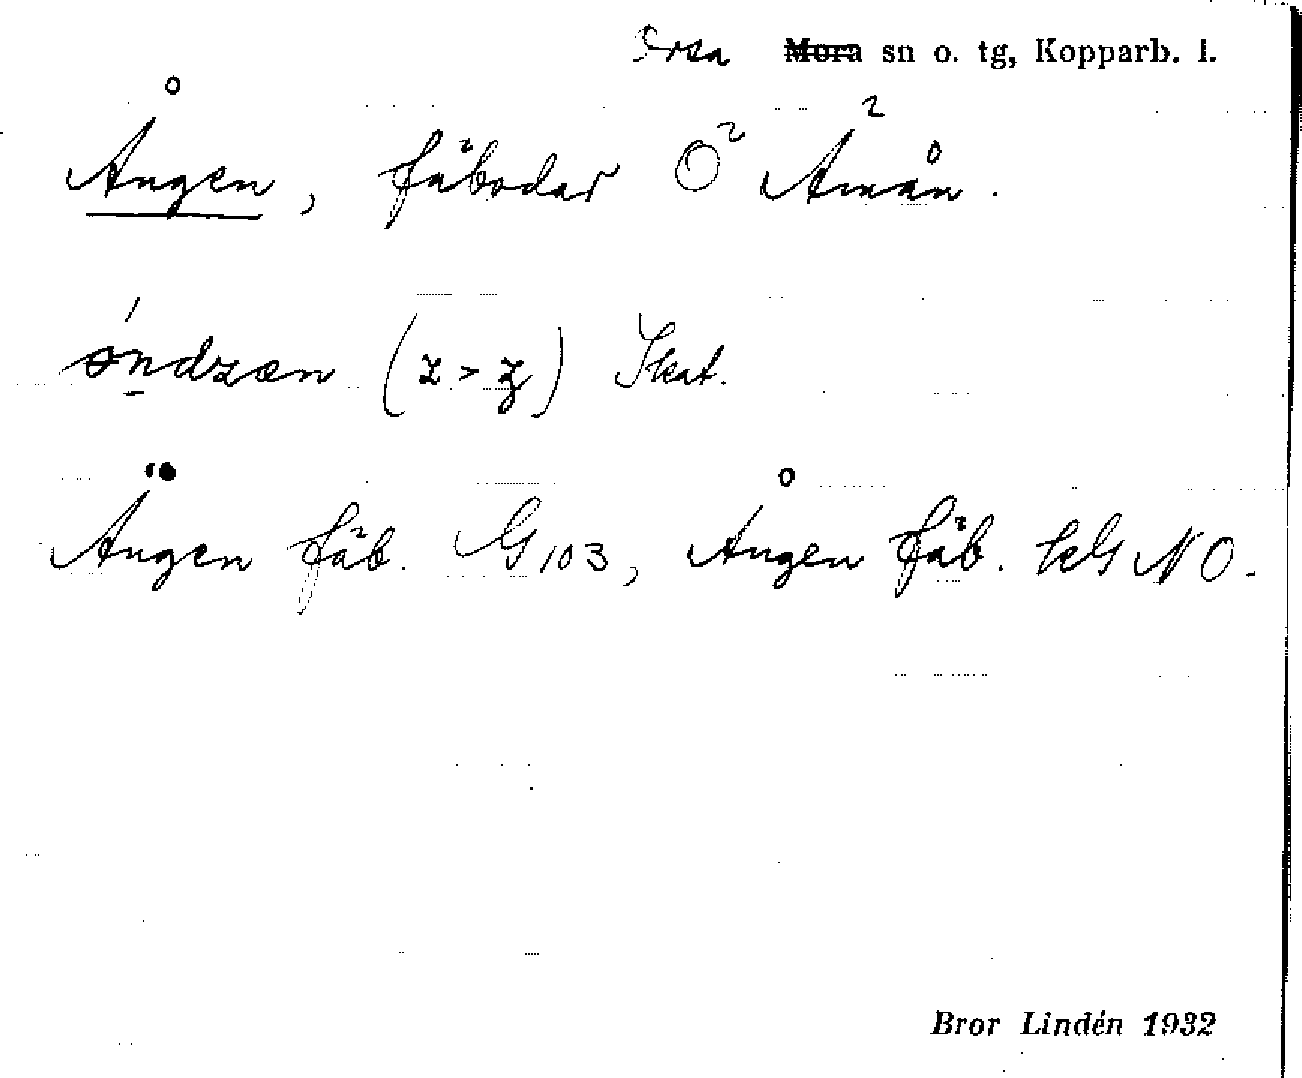 Orsa ~~Mora~~ sn o. tg, Kopparb. l.
Ången, fäbodar O² Åmån.
óndzæn (z > ʒ) Skat.
Ängen fäb. G 103, Ången fäb. kG NO.
Bror Lindén 1932